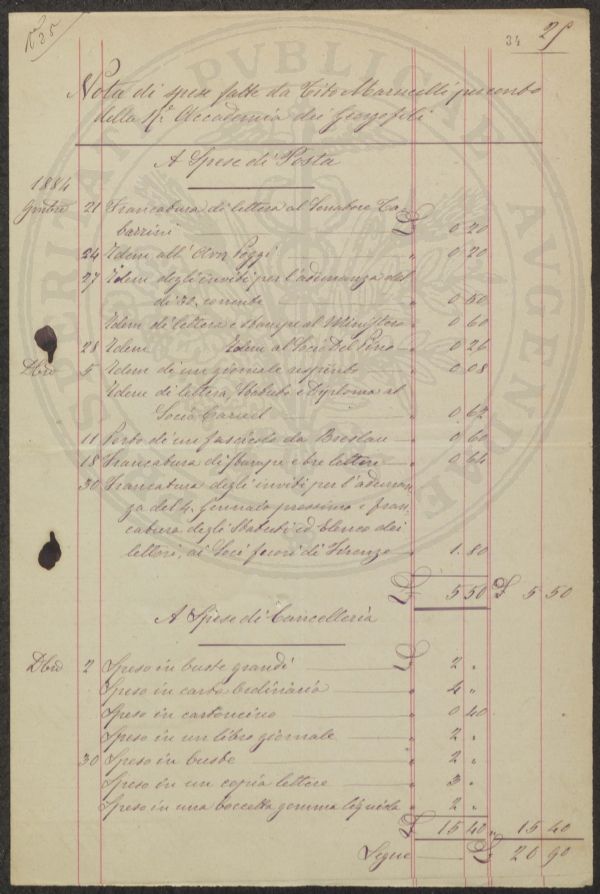 34 25
Nota di spese fatte da Tito Marucelli per conto
della R.e Accademia dei Georgofili
A Spese di Posta
1884
9mbre 21 Francatura di lettera al Senatore Ta-
barrini £ 0 20
24 Idem all' Avv. Poggi " 0 20
27 Idem degli inviti per l'adunanza del
di 30, corrente " 0 50
Idem di lettera e stampe al Ministero " 0 60
28 Idem Idem al Socio Del Pino " 0 26
Dbre 5 Idem di un giornale respinto " 0 08
Idem di lettera, Statuto e Diploma al
Socio " 0 62
11 Porto di un fascicolo da Breslau " 0 60
18 Francatura di stampe e tre lettere " 0 64
30 Francatura degli inviti per l'adunan-
za del 4. Gennaio prossimo e fran-
catura degli Statuti ed Elenco dei
lettori, ai Soci fuori di Firenze " 1.80
£ 5 50 £ 5 50
A Spese di Cancelleria
Dbre 2 Speso in buste grandi £ 2 "
Speso in carta ordinaria " 4 "
Speso in cartoncino " 0 40
Speso in un libro giornale " 2 "
30 Speso in buste " 2 "
Speso in un copia lettere " 3 "
Speso in una boccetta gomma liquida " 2 "
£ 15 40 " 15 40
Segue £ 20 90
PROSPERITATI PUBLICAE AUGENDAE